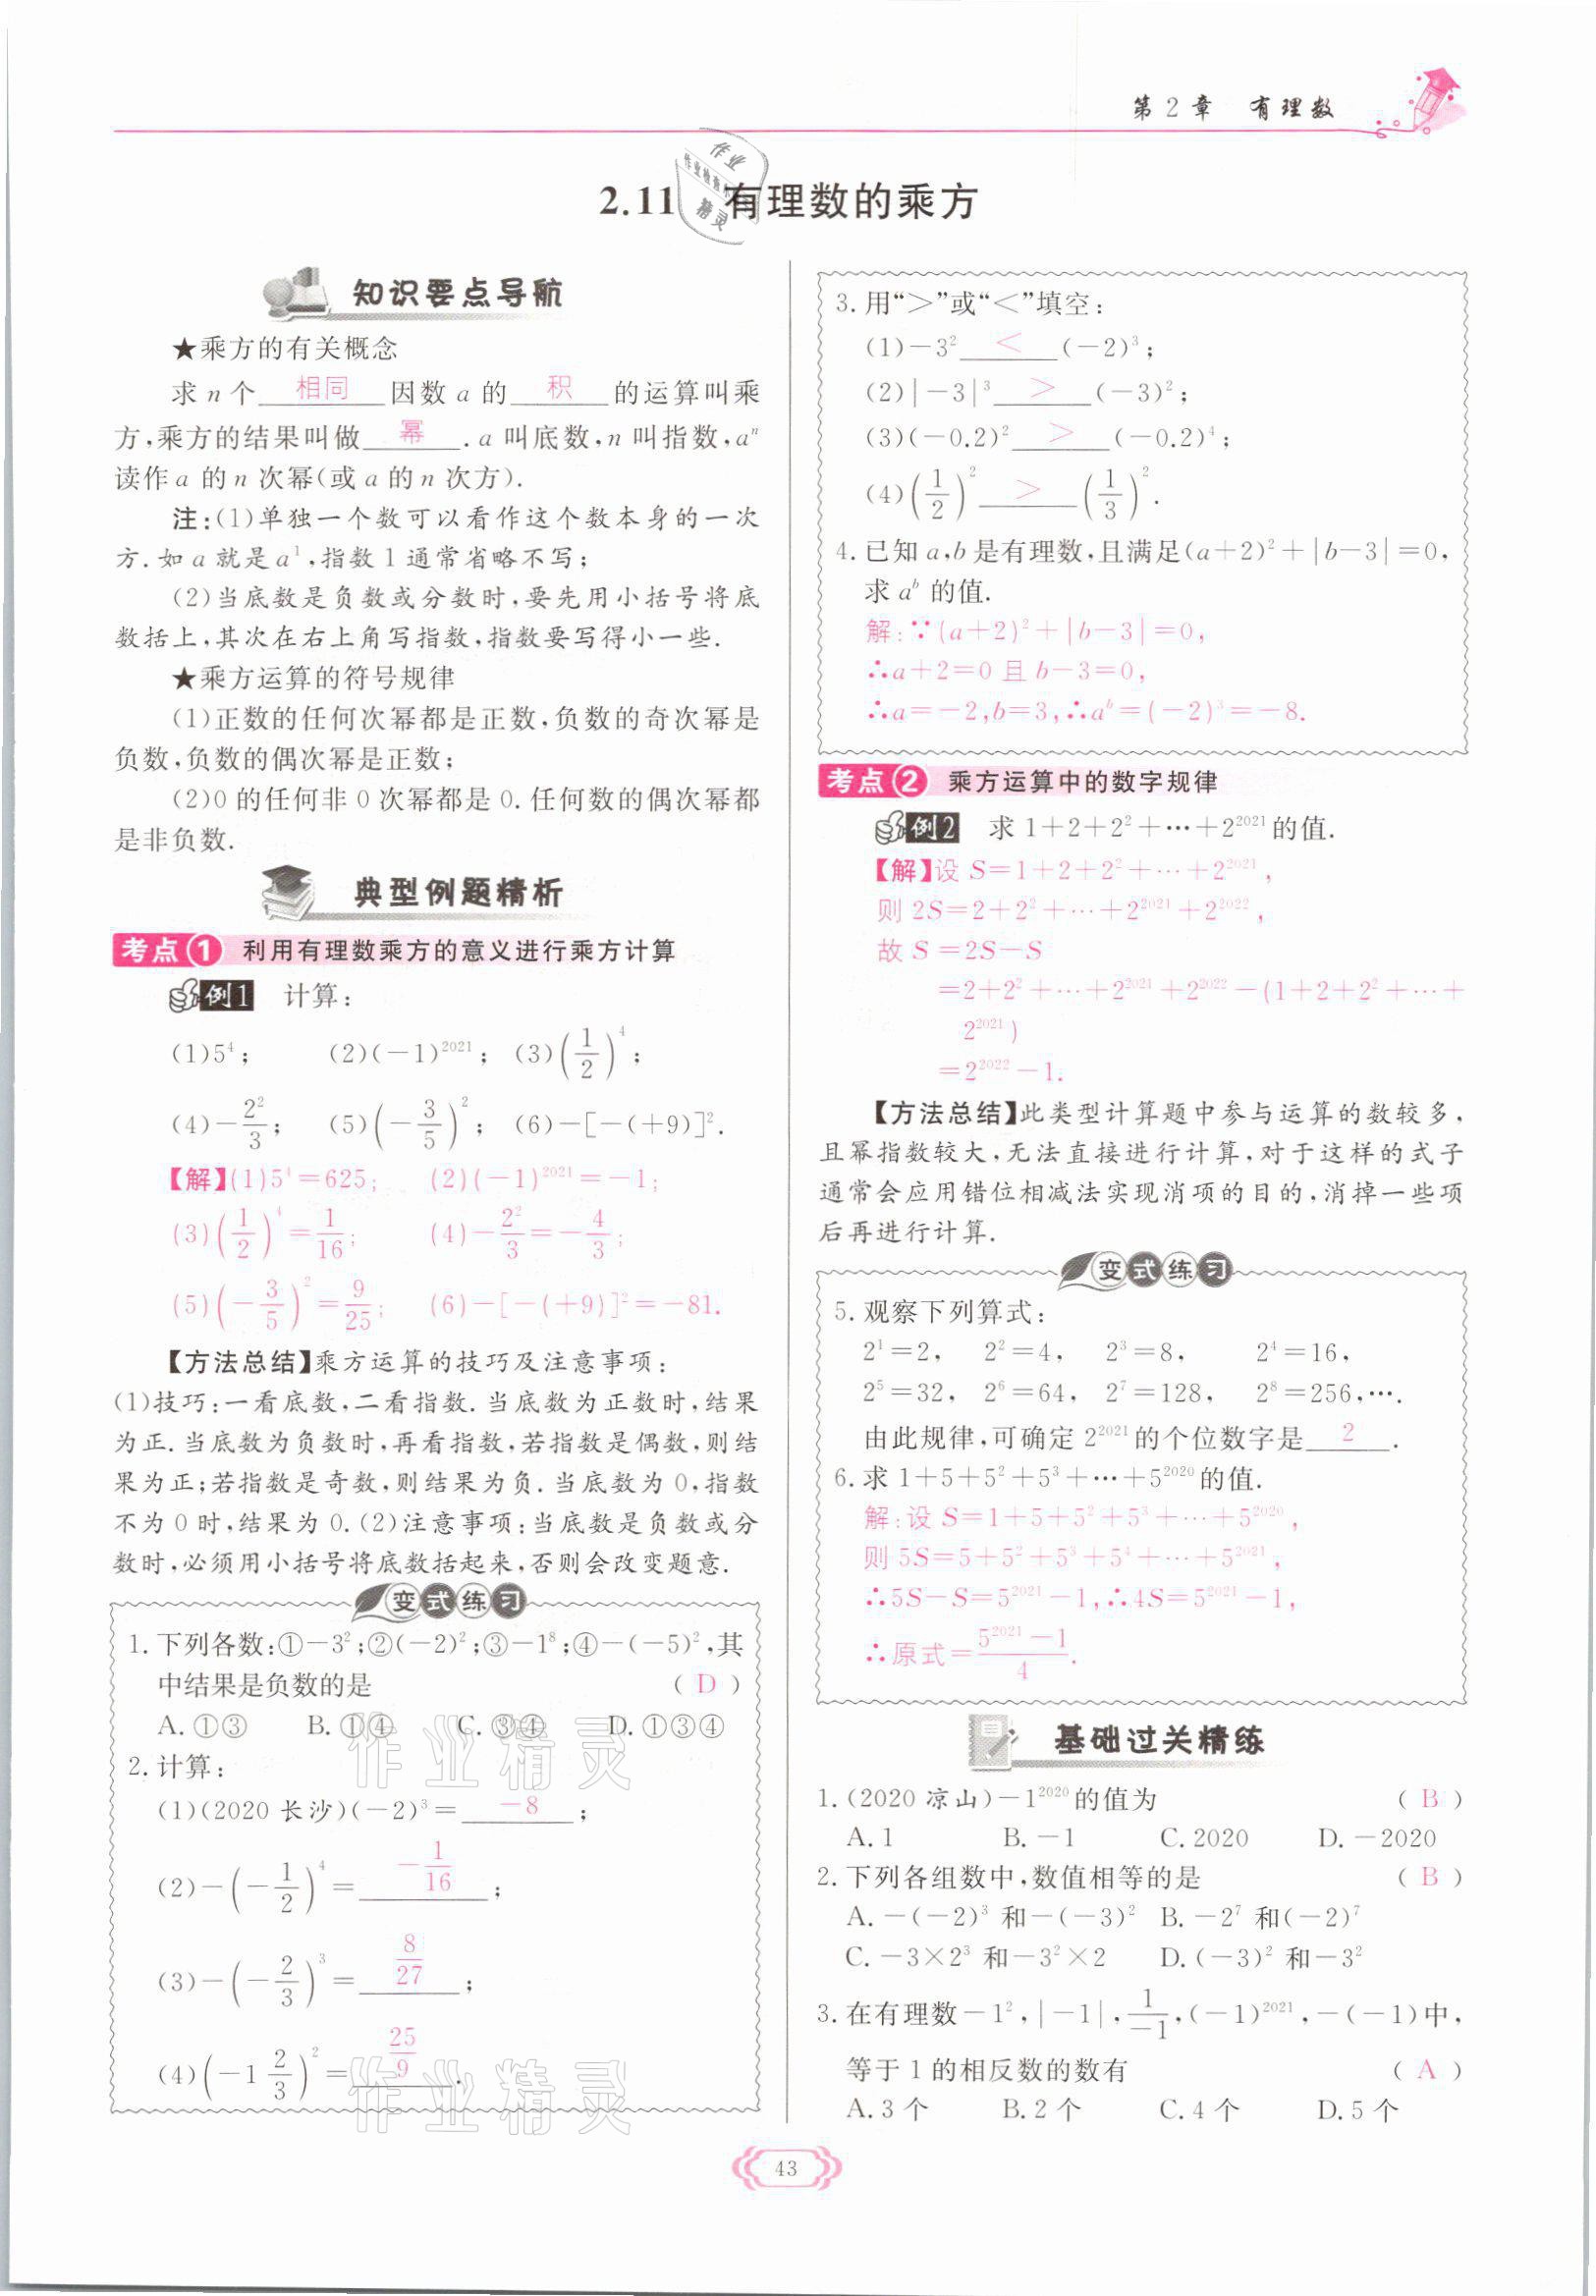 第2章 有理数
2.11 有理数的乘方
知识要点导航
★乘方的有关概念
求 n 个 相同 因数 a 的 积 的运算叫乘
方,乘方的结果叫做 幂 .a 叫底数,n 叫指数,aⁿ
读作 a 的 n 次幂(或 a 的 n 次方).
注:(1)单独一个数可以看作这个数本身的一次
方.如 a 就是 a¹,指数 1 通常省略不写;
(2)当底数是负数或分数时,要先用小括号将底
数括上,其次在右上角写指数,指数要写得小一些.
★乘方运算的符号规律
(1)正数的任何次幂都是正数,负数的奇次幂是
负数,负数的偶次幂是正数;
(2)0 的任何非 0 次幂都是 0.任何数的偶次幂都
是非负数.
典型例题精析
考点1 利用有理数乘方的意义进行乘方计算
例1 计算:
(1)5⁴; (2)(-1)²⁰²¹; (3)(1/2)⁴;
(4)-2²/3; (5)(-3/5)²; (6)-[-(+9)]².
【解】(1)5⁴=625; (2)(-1)²⁰²¹=-1;
(3)(1/2)⁴=1/16; (4)-2²/3=-4/3;
(5)(-3/5)²=9/25; (6)-[-(+9)]²=-81.
【方法总结】乘方运算的技巧及注意事项:
(1)技巧:一看底数,二看指数.当底数为正数时,结果
为正.当底数为负数时,再看指数,若指数是偶数,则结
果为正;若指数是奇数,则结果为负.当底数为 0,指数
不为 0 时,结果为 0.(2)注意事项:当底数是负数或分
数时,必须用小括号将底数括起来,否则会改变题意.
变式练习
1.下列各数:①-3²;②(-2)²;③-1⁸;④-(-5)²,其
中结果是负数的是 ( D )
A.①③ B.①④ C.③④ D.①③④
2.计算:
(1)(2020 长沙)(-2)³= -8 ;
(2)-(-1/2)⁴= -1/16 ;
(3)-(-2/3)³= 8/27 ;
(4)(-1 2/3)²= 25/9 .
3.用“>”或“<”填空:
(1)-3² < (-2)³;
(2)|-3|³ > (-3)²;
(3)(-0.2)² > (-0.2)⁴;
(4)(1/2)² > (1/3)².
4.已知 a,b 是有理数,且满足(a+2)²+|b-3|=0,
求 aᵇ 的值.
解:∵(a+2)²+|b-3|=0,
∴a+2=0 且 b-3=0,
∴a=-2,b=3,∴aᵇ=(-2)³=-8.
考点2 乘方运算中的数字规律
例2 求 1+2+2²+…+2²⁰²¹的值.
【解】设 S=1+2+2²+…+2²⁰²¹,
则 2S=2+2²+…+2²⁰²¹+2²⁰²²,
故 S=2S-S
=2+2²+…+2²⁰²¹+2²⁰²²-(1+2+2²+…+
2²⁰²¹)
=2²⁰²²-1.
【方法总结】此类型计算题中参与运算的数较多,
且幂指数较大,无法直接进行计算,对于这样的式子
通常会应用错位相减法实现消项的目的,消掉一些项
后再进行计算.
变式练习
5.观察下列算式:
2¹=2, 2²=4, 2³=8, 2⁴=16,
2⁵=32, 2⁶=64, 2⁷=128, 2⁸=256,….
由此规律,可确定 2²⁰²¹的个位数字是 2 .
6.求 1+5+5²+5³+…+5²⁰²⁰的值.
解:设 S=1+5+5²+5³+…+5²⁰²⁰,
则 5S=5+5²+5³+5⁴+…+5²⁰²¹,
∴5S-S=5²⁰²¹-1,∴4S=5²⁰²¹-1,
∴原式=(5²⁰²¹-1)/4.
基础过关精练
1.(2020 凉山)-1²⁰²⁰的值为 ( B )
A.1 B.-1 C.2020 D.-2020
2.下列各组数中,数值相等的是 ( B )
A.-(-2)³ 和-(-3)² B.-2⁷ 和(-2)⁷
C.-3×2³ 和-3²×2 D.(-3)² 和-3²
3.在有理数-1²,|-1|,1/-1,(-1)²⁰²¹,-(-1)中,
等于 1 的相反数的数有 ( A )
A.3 个 B.2 个 C.4 个 D.5 个
43
作业精灵
作业精灵